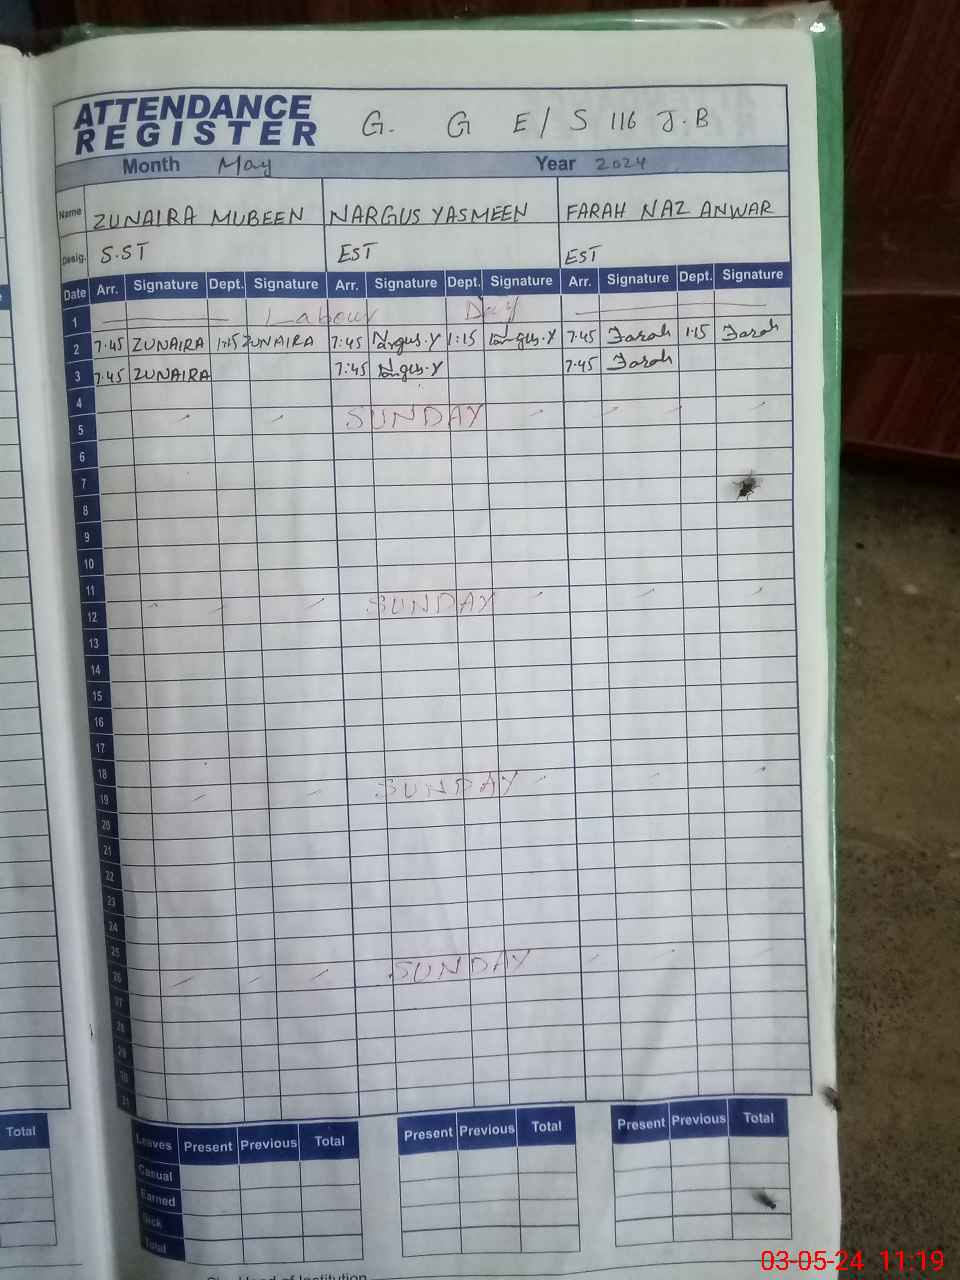 ATTENDANCE REGISTER G. G E/S 116 J.B
Month May Year 2024
Name ZUNAIRA MUBEEN NARGUS YASMEEN FARAH NAZ ANWAR
Desig. S.ST EST EST
Date Arr. Signature Dept. Signature Arr. Signature Dept. Signature Arr. Signature Dept. Signature
1 Labour Day
2 7.45 ZUNAIRA 1:15 ZUNAIRA 7:45 Nargus.Y 1:15 Nargus.Y 7.45 Farah 1.15 Farah
3 7.45 ZUNAIRA 7:45 Nargus.Y 7.45 Farah
4
5 SUNDAY
6
7
8
9
10
11
12 SUNDAY
13
14
15
16
17
18
19 SUNDAY
20
21
22
23
24
25
26 SUNDAY
27
28
29
30
31
Total
Leaves Present Previous Total Present Previous Total Present Previous Total
Casual
Earned
Sick
Total
Head of Institution
03-05-24 11:19